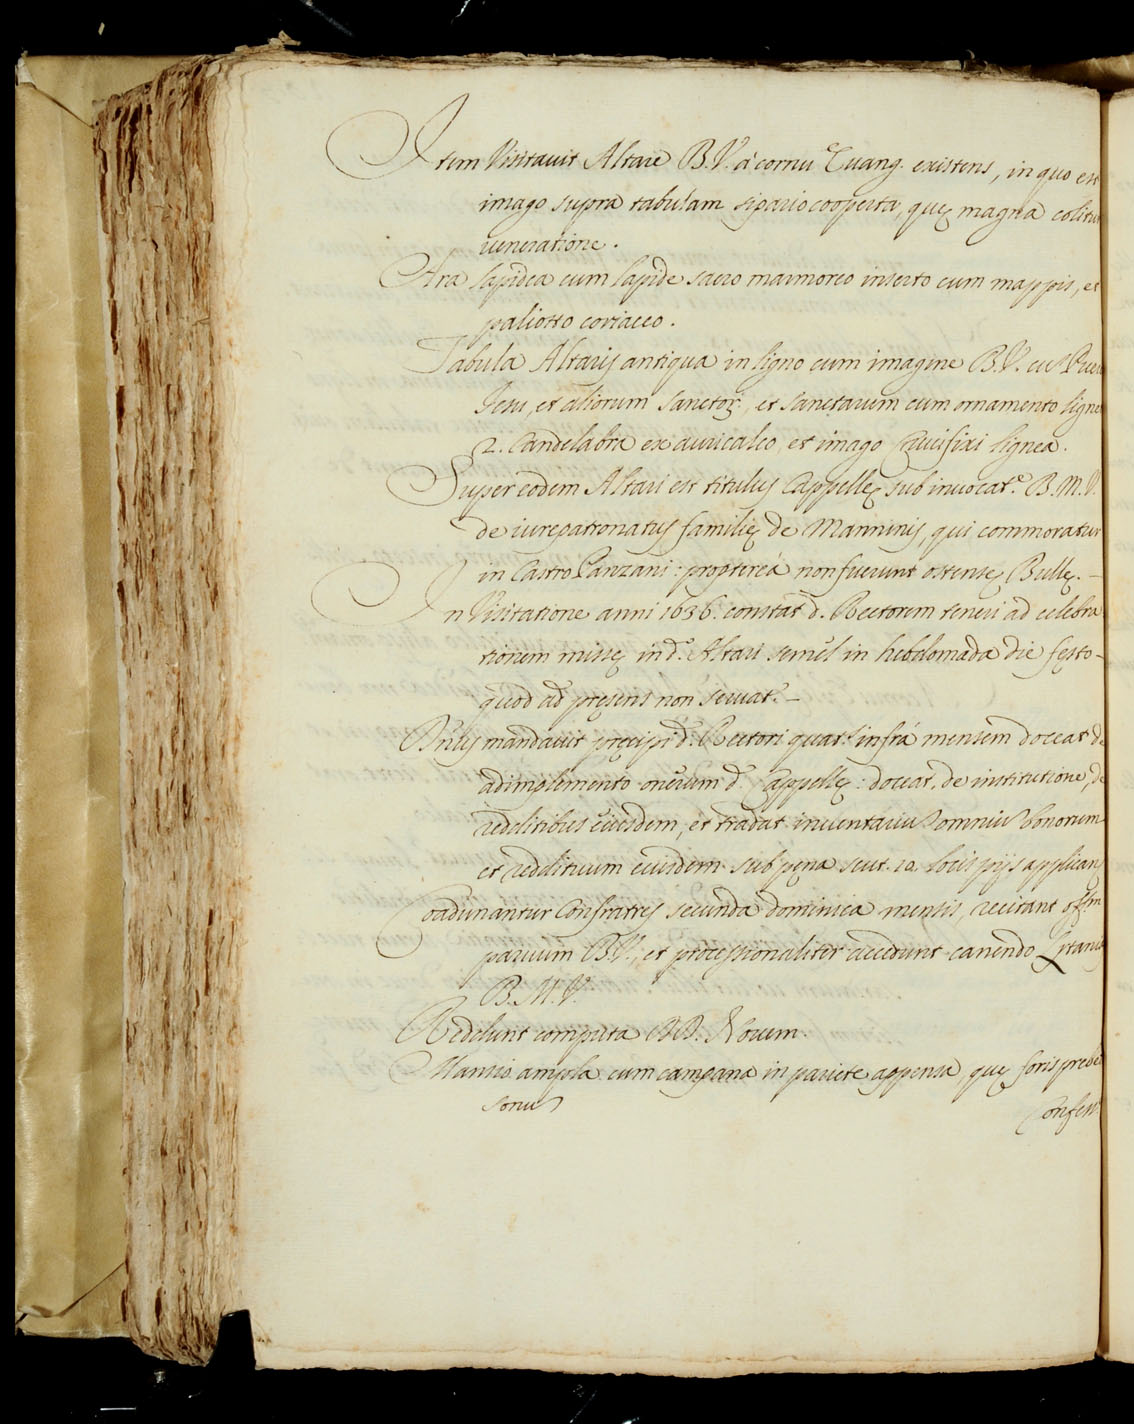 Item Visitauit Altare B.V. à cornu Euang. existens, in quo est
imago supra tabulam sipario cooperta, quę magna colitur
ueneratione.
Ara lapidea cum lapide sacro marmoreo inserto cum mappis, et
paliotto coriaceo.
Tabula Altaris antiqua in ligno cum imagine B.V. cū Puero
Jesu, et aliorum Sanctor:, et Sanctarum cum ornamento ligneo
2. Candelabra ex auricalco, et imago Crucifixi lignea.
Super eodem Altari est titulus Cappellę sub inuocat.e B.M.V.
de iurepatronatus familię de Manninis, qui commoratur
in Castro Panzani: proptereà non fuerunt ostensę Bullę. –
In Visitatione anni 1636. constat d. Rectorem teneri ad celebra
tionem missę in d. Altari semel in hebdomada die festo –
quod ad pręsens non seruat.r –
Vnus mandauit pręcipi d. Rectori quat.s infrà mensem doceat de
adimplemento onerum d. Cappellę: doceat de institutione, de
redditibus eiusdem, et tradat inuentariū omniū bonorum
et reddituum eiusdem sub pęna scut. 10. locis pijs applican
Coadunantur Confratres secunda dominica mensis, recitant off.m
paruum B.V., et processionaliter incedunt canendo Lytanias
B.M.V.
Reddunt computa DD. Nouem.
Mansio ampla cum campana in pariete appensa, quę foris prebet
sonū
Confess.